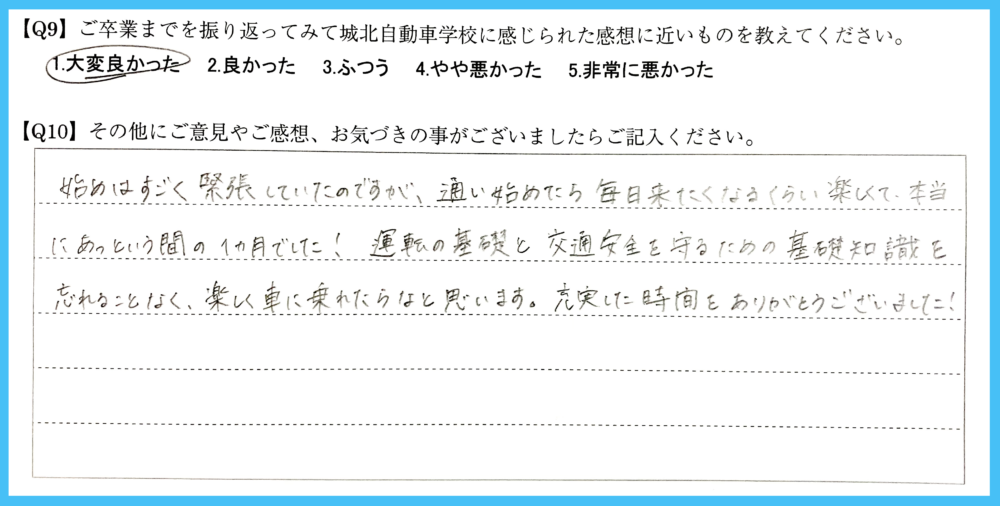 【Q9】ご卒業までを振り返ってみて城北自動車学校に感じられた感想に近いものを教えてください。
1.大変良かった 2.良かった 3.ふつう 4.やや悪かった 5.非常に悪かった
【Q10】その他にご意見やご感想、お気づきの事がございましたらご記入ください。
始めはすごく緊張していたのですが、通い始めたら毎日来たくなるくらい楽しくて、本当
にあっという間の1カ月でした！ 運転の基礎と交通安全を守るための基礎知識を
忘れることなく、楽しく車に乗れたらなと思います。充実した時間をありがとうございました！